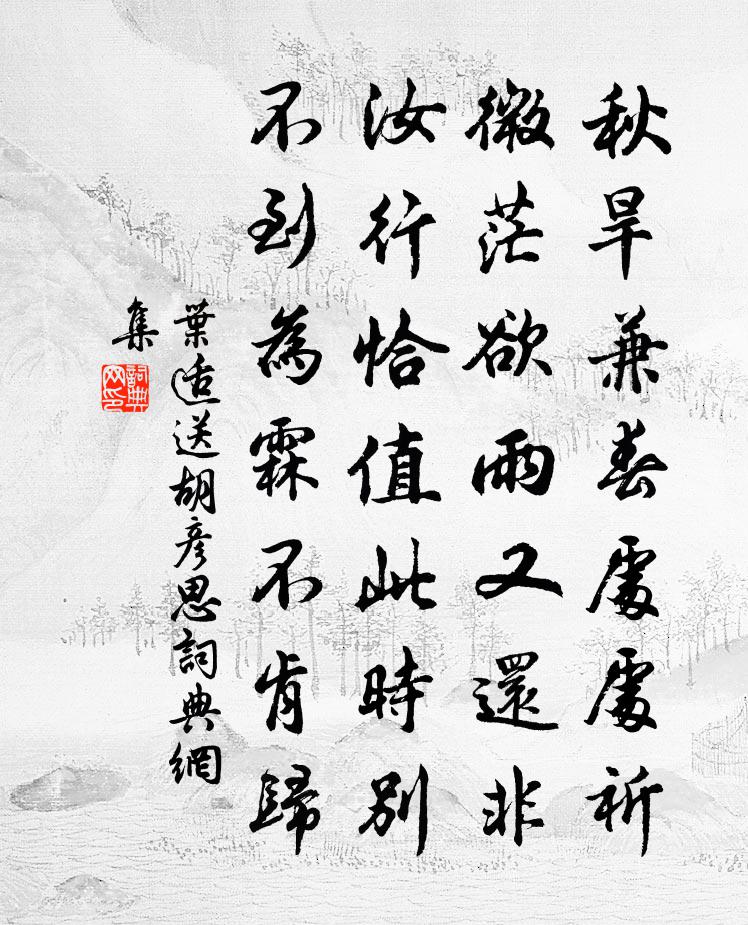 秋旱兼春處處祈
微茫欲雨又還非
汝行恰值此時別
不到為霖不肯歸
葉適送胡彥思詞典網
集
詞典網印